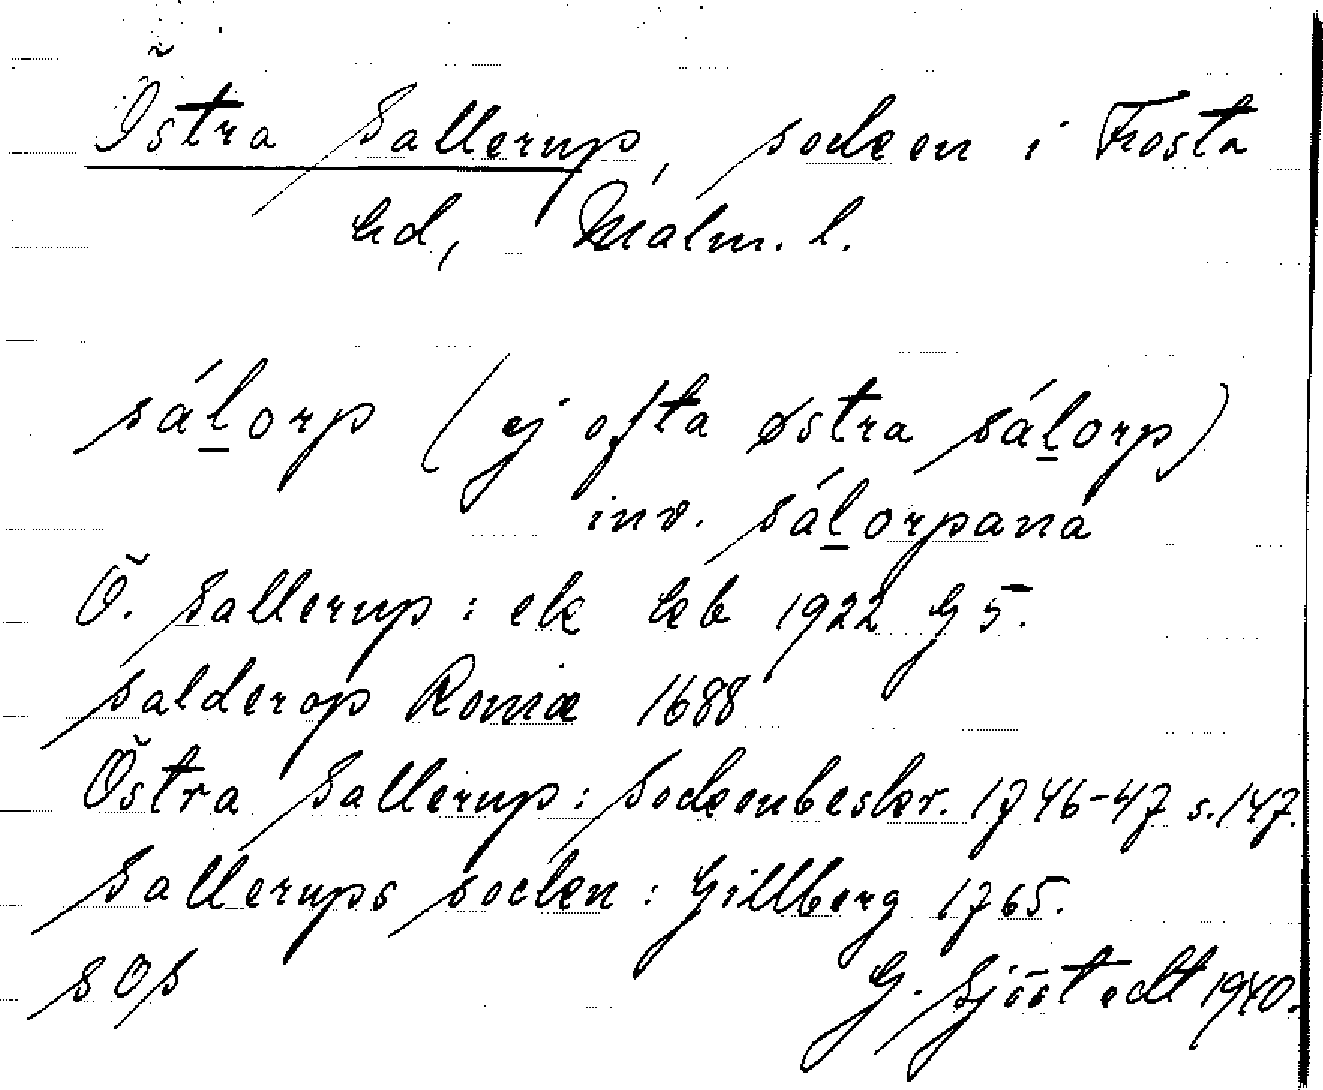 Östra Sallerup, socken i Frosta
hd, Malm. l.
sál̲orp (ej ofta østra sál̲orp)
inv. sál̲orpana
Ö. Sallerup: ek kb 1922 G 5.
Salderop Roniæ 1688
Östra Sallerup: Sockenbeskr. 1746-47 s. 147.
Sallerups socken: Gillberg 1765.
SOS G. Sjöstedt 1940.